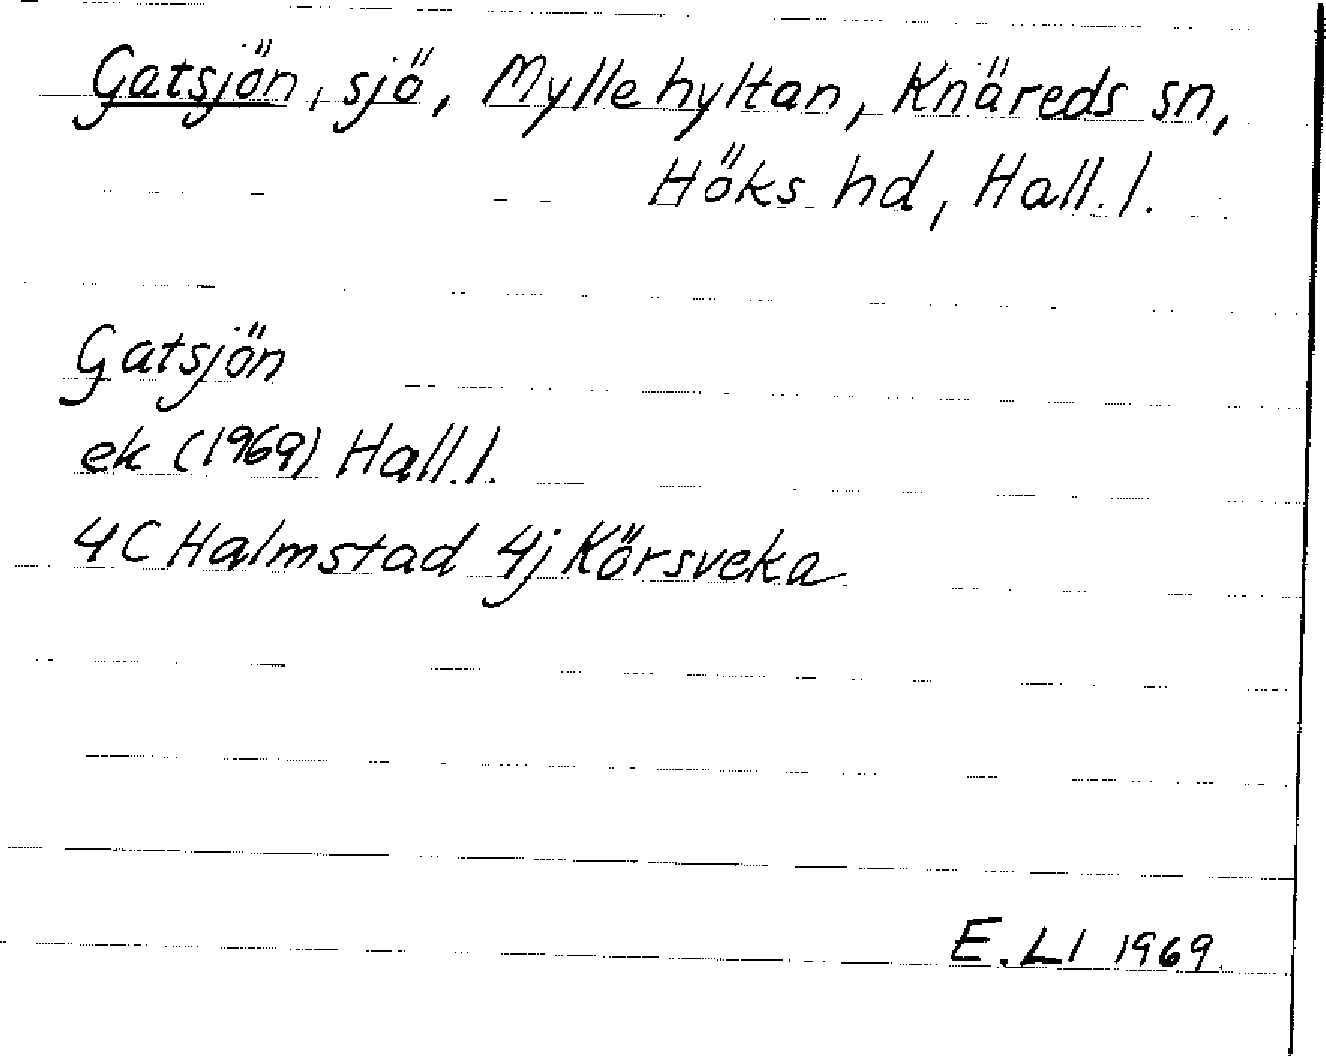 Gatsjön, sjö, Myllehyltan, Knäreds sn,
Höks hd, Hall.l.
Gatsjön
ek (1969) Hall.l.
4C Halmstad 4j Körsveka
E.Ll 1969.